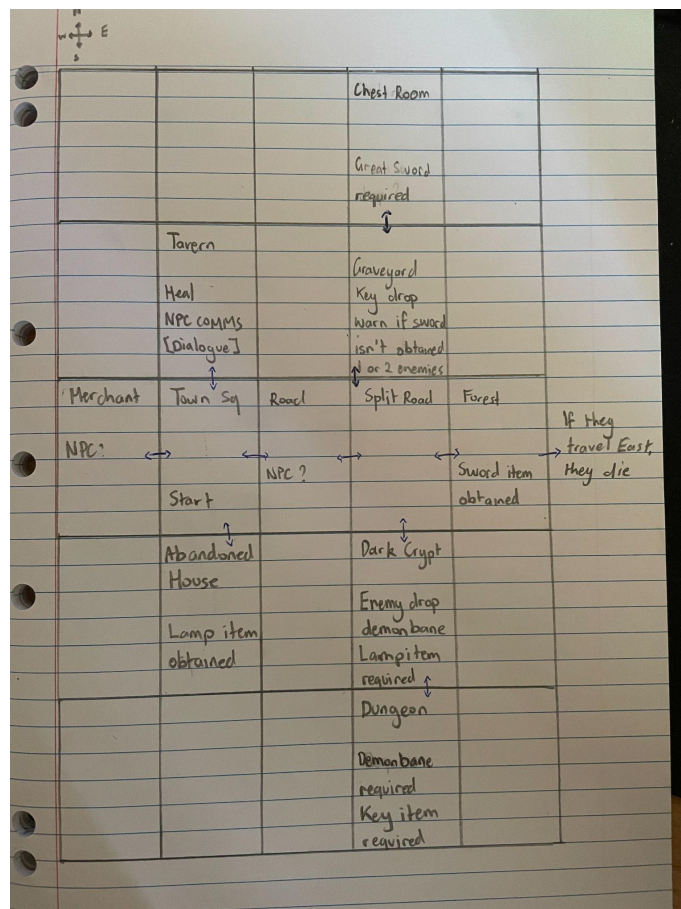 N
W E
S
Chest Room
Great Sword
required
Tavern
Heal
NPC COMMS
[Dialogue]
Graveyard
Key drop
warn if sword
isn't obtained
1 or 2 enemies
Merchant
NPC?
Town Sq
Start
Road
NPC ?
Split Road
Forest
Sword item
obtained
If they
travel East,
they die
Abandoned
House
Lamp item
obtained
Dark Crypt
Enemy drop
demonbane
Lamp item
required
Dungeon
Demonbane
required
Key item
required